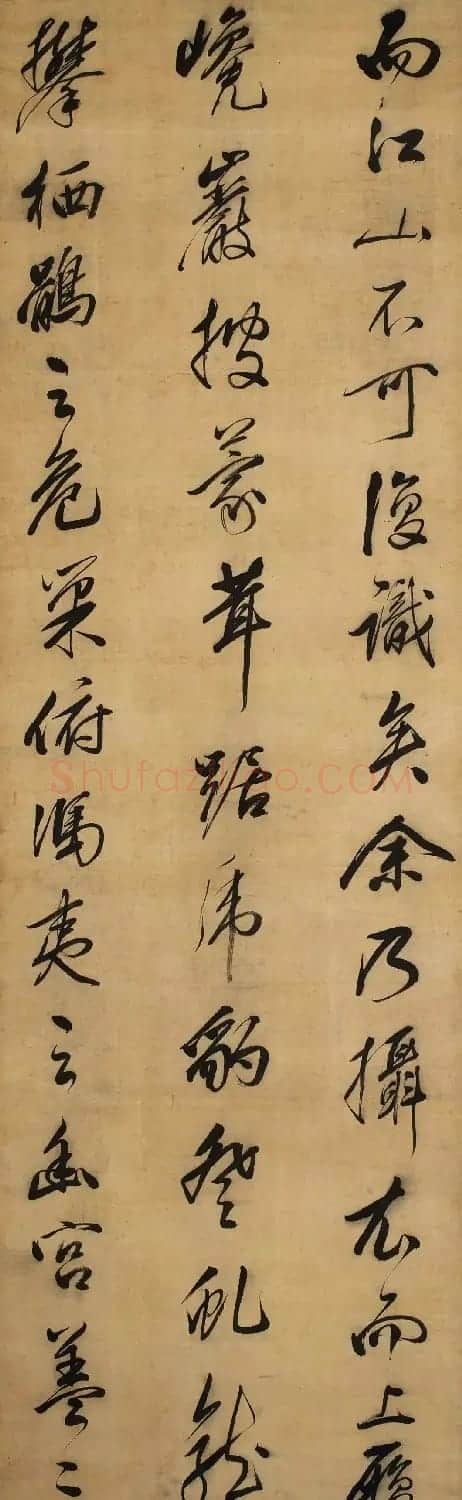 而江山不可復識矣余乃攝衣而上履
巉巖披蒙茸踞虎豹登虬龍
攀栖鶻之危巢俯馮夷之幽宮蓋二